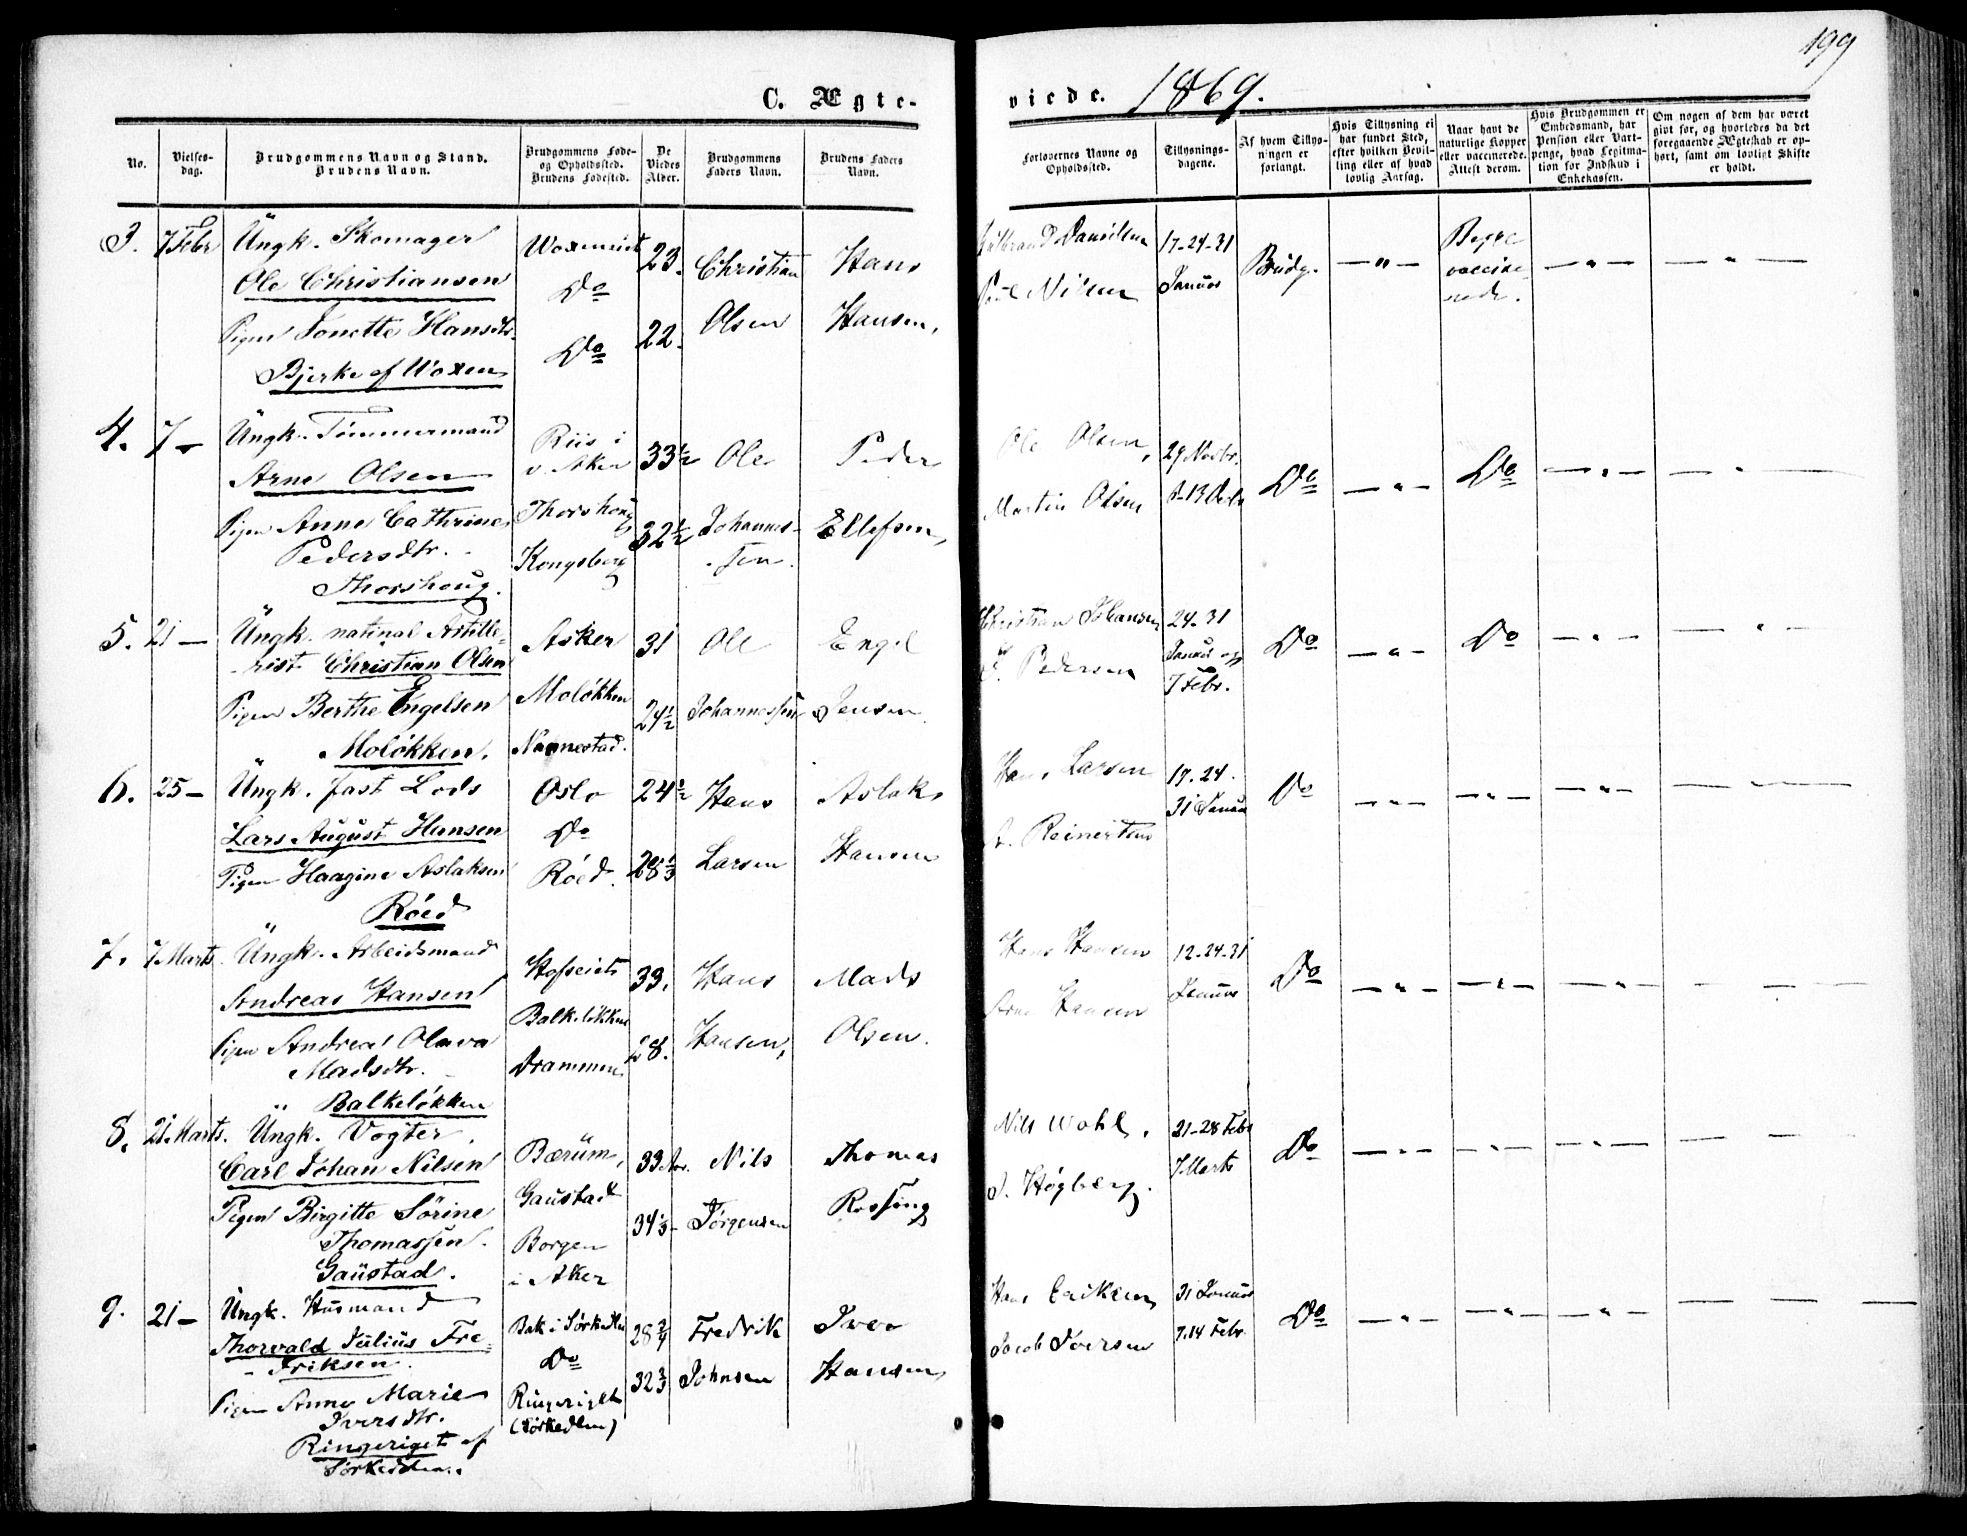 199
C. Ægte-
viede. 1869.
No.
Vielses-
dag.
Brudgommens Navn og Stand.
Brudens Navn.
Brudgommens Føde-
og Opholdssted.
Brudens Fødested.
De
Viedes
Alder.
Brudgommens
Faders Navn.
Brudens Faders
Navn.
Forlovernes Navne og
Opholdssted.
Tillysnings-
dagene.
Af hvem Tillys-
ningen er
forlangt.
Hvis Tillysning ei
har fundet Sted,
efter hvilken Bevil-
ling eller af hvad
lovlig Aarsag.
Naar havt de
naturlige Kopper
eller vaccinerede.
Attest derom.
Hvis Brudgommen er
Embedsmand, har
Pension eller Vart-
penge, hvad Legitima-
tion for Indskud i
Enkekassen.
Om nogen af dem har været
gift før, og hvorledes da det
foregaaende Ægteskab er op-
hørt, samt om lovligt Skifte
er holdt.
3. 7 Febr Ungk. Skomager
Ole Christiansen
Pigen Jonette Hansdtr.
Bjerke af Woxen
Woxenseiet
Do
Do
23.
22.
Christian
Olsen
Hans
Hansen,
Gulbrand Danielsen
Paul Nilsen
17-24-31
Januar
Brudg.
— " —
Begge
vaccine-
rede.
— " —
— " —
4. 7 — Ungk. Tømmermand
Arne Olsen
Pigen Anne Cathrine
Pedersdtr.
Thorshoug.
Riis i
v. Aker
Thorshoug
Kongsberg
33½
32½
Ole
Johannes-
sen.
Peder
Ellefsen,
Ole Olsen,
Martin Olsen
29 Novbr.
6-13 Decbr
Do
— " —
Do
— " —
— " —
5. 21 — Ungk. natinal Artille-
rist Christian Olsen
Pigen Berthe Engelsen
" Moløkken.
Asker
Moløkken
Nannestad.
31
24½
Ole
Johannessen
Engel
Jensen
Christian Johansen
Pedersen
24-31
Januar og
7 Febr.
Do
— " —
Do
— " —
— " —
6. 25 — Ungk. fast Lods
Lars August Hansen
Pigen Haagine Aslaksen
Røed
Oslo
Do
Røed.
24½
28⅓
Hans
Larsen
Aslak
Hansen
Hans Larsen
A. Reinertsen
17-24.
31 Januar
Do
— " —
— " —
— " —
7. 7 Marts. Ungk. Arbeidsmand
Andreas Hansen
Pigen Andrea Olava
Madsdtr.
" Balkeløkken
Hofseiet
Balkeløkken
Drammen
33.
28.
Hans
Hansen,
Mads
Olsen.
Hans Hansen
Arne Hansen
12-24-31
Januar
Do
— " —
— " —
— " —
8. 21. Marts. Ungk. Vogter.
Carl Johan Nilsen
Pigen Birgitte Sörine
Thomassen.
Gaustad.
Bærum,
Gaustad
Borgen
i Aker
33 Aar.
34⅓
Nils
Jörgensen
Thomas
Rossing
Nils Wohl.
Høgberg.
21-28 Febr
7 Marts
Do
— " —
— " —
— " —
9. 21 — Ungk. Husmand
Thorvald Julius Fre-
driksen.
Pigen Anne Marie
Iversdtr.
Ringeriget af
Sørkedalen.
Bak i Sørkedalen
Do
Ringeriget
(Sørkedlen)
28¾
32⅔
Fredrik
Johnsen
Iver
Hansen
Hans Eriksen
Jacob Iversen
31 Januar
7.14 Febr.
Do
— " —
— " —
— " —